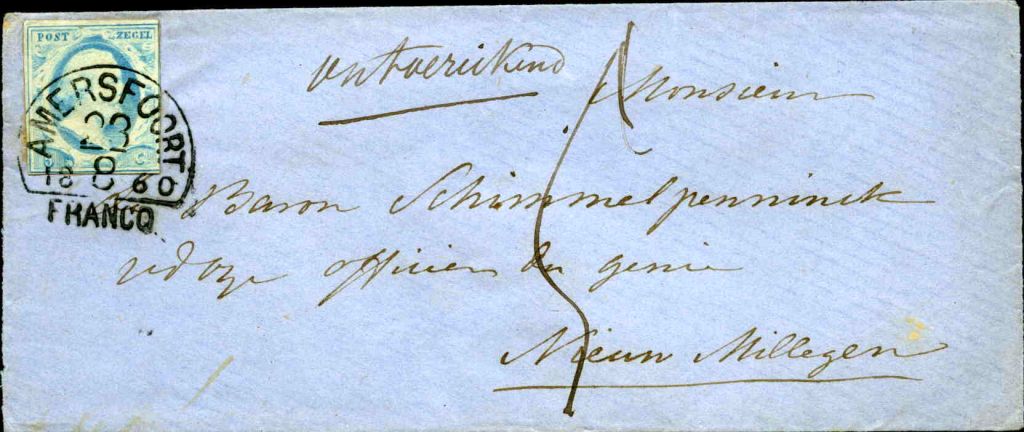 POST ZEGEL
AMERSFOORT
23
8
1860
FRANCO
ontoereikend
Monsieur
Baron Schimmelpenninck
officier du genie
Nieuw Millegen